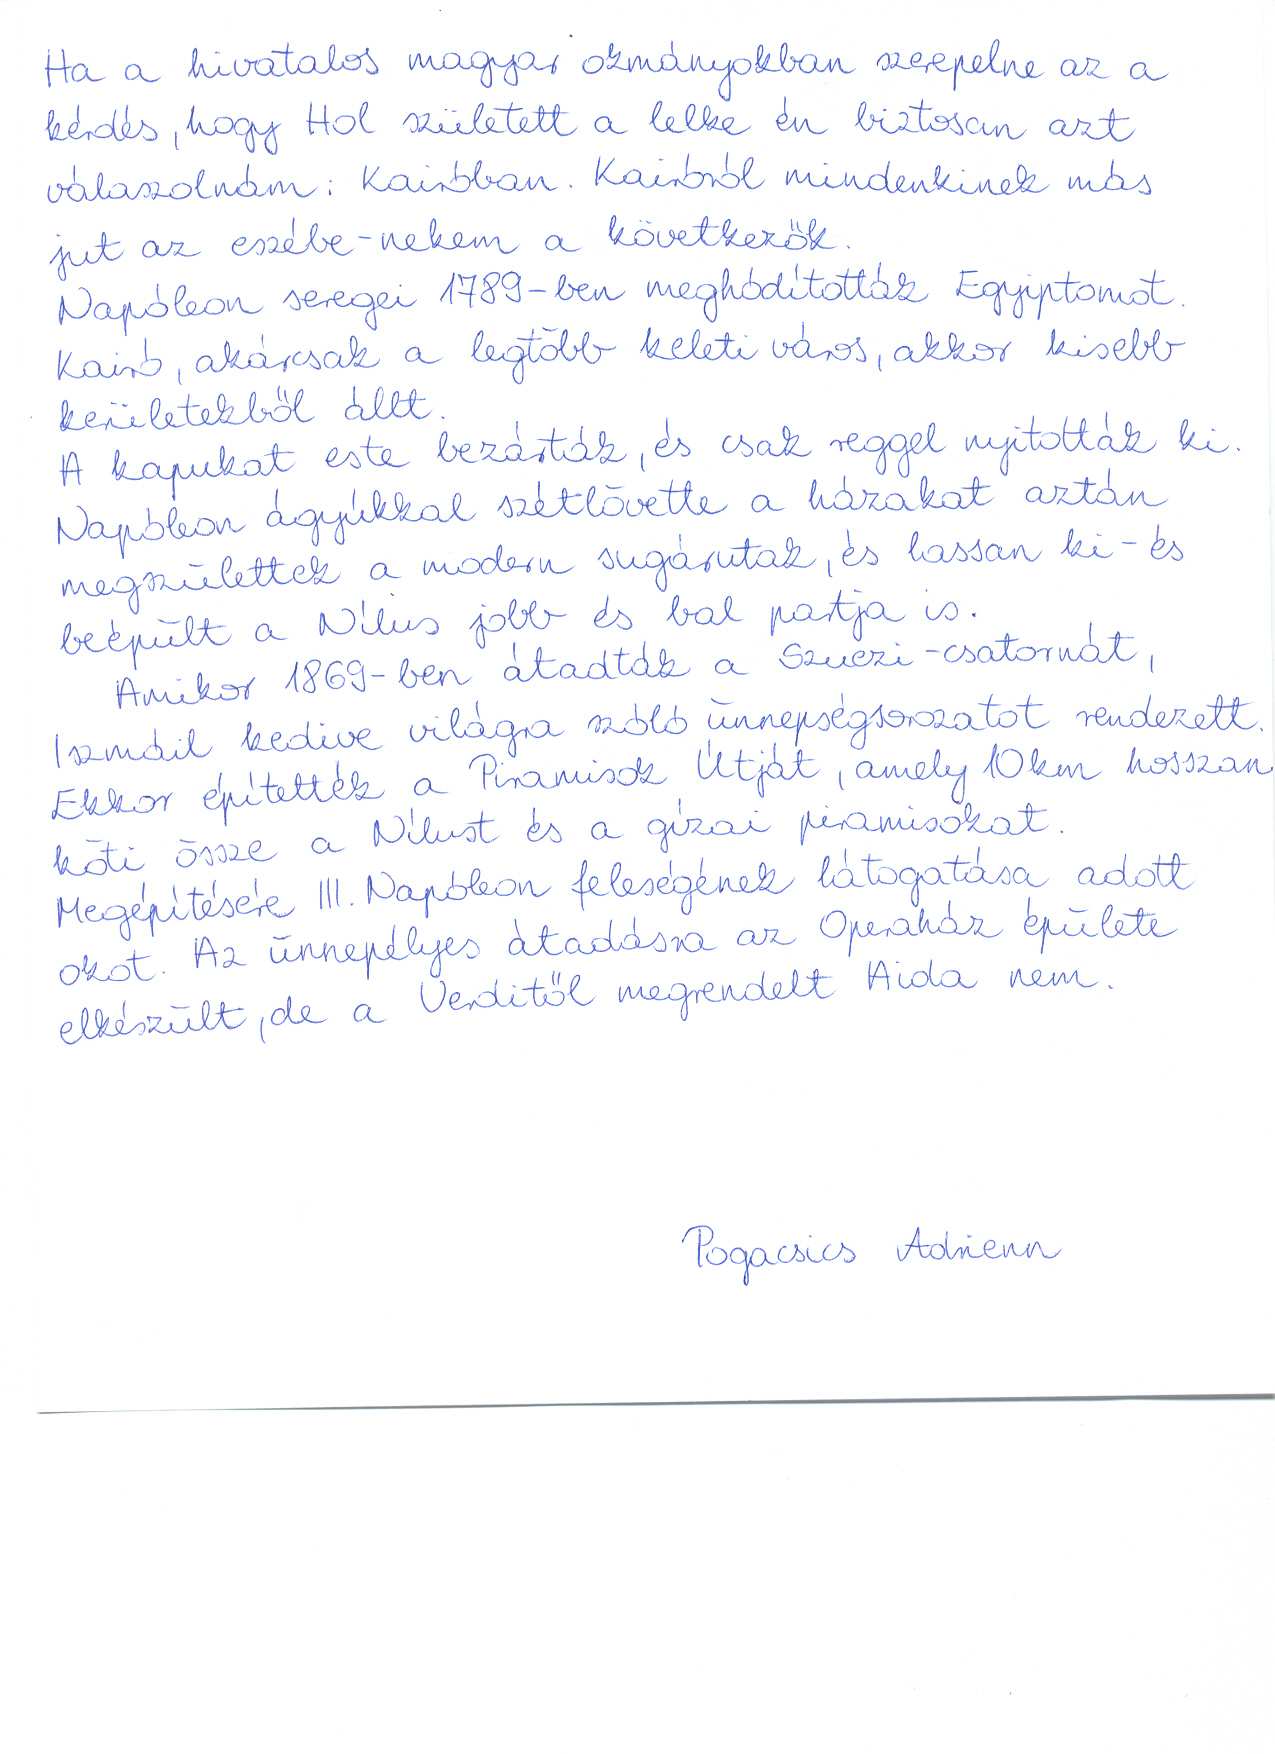 Ha a hivatalos magyar okmányokban szerepelne az a
kérdés, hogy Hol született a lelke én biztosan azt
válaszolnám: Kairóban. Kairóról mindenkinek más
jut az eszébe-nekem a következők.
Napóleon seregei 1789-ben meghódították Egyiptomot.
Kairó, akárcsak a legtöbb keleti város, akkor kisebb
kerületekből állt.
A kapukat este bezárták, és csak reggel nyitották ki.
Napóleon ágyúkkal szétlövette a házakat aztán
megszülettek a modern sugárutak, és lassan ki-és
beépült a Nílus jobb és bal partja is.
Amikor 1869-ben átadták a Szuezi-csatornát,
Iszmáil kedive világra szóló ünnepségsorozatot rendezett.
Ekkor építették a Piramisok Útját, amely 10km hosszan
köti össze a Nílust és a gízai piramisokat.
Megépítésére III. Napóleon feleségének látogatása adott
okot. Az ünnepélyes átadásra az Operaház épülete
elkészült, de a Verditől megrendelt Aida nem.
Pogacsics Adrienn